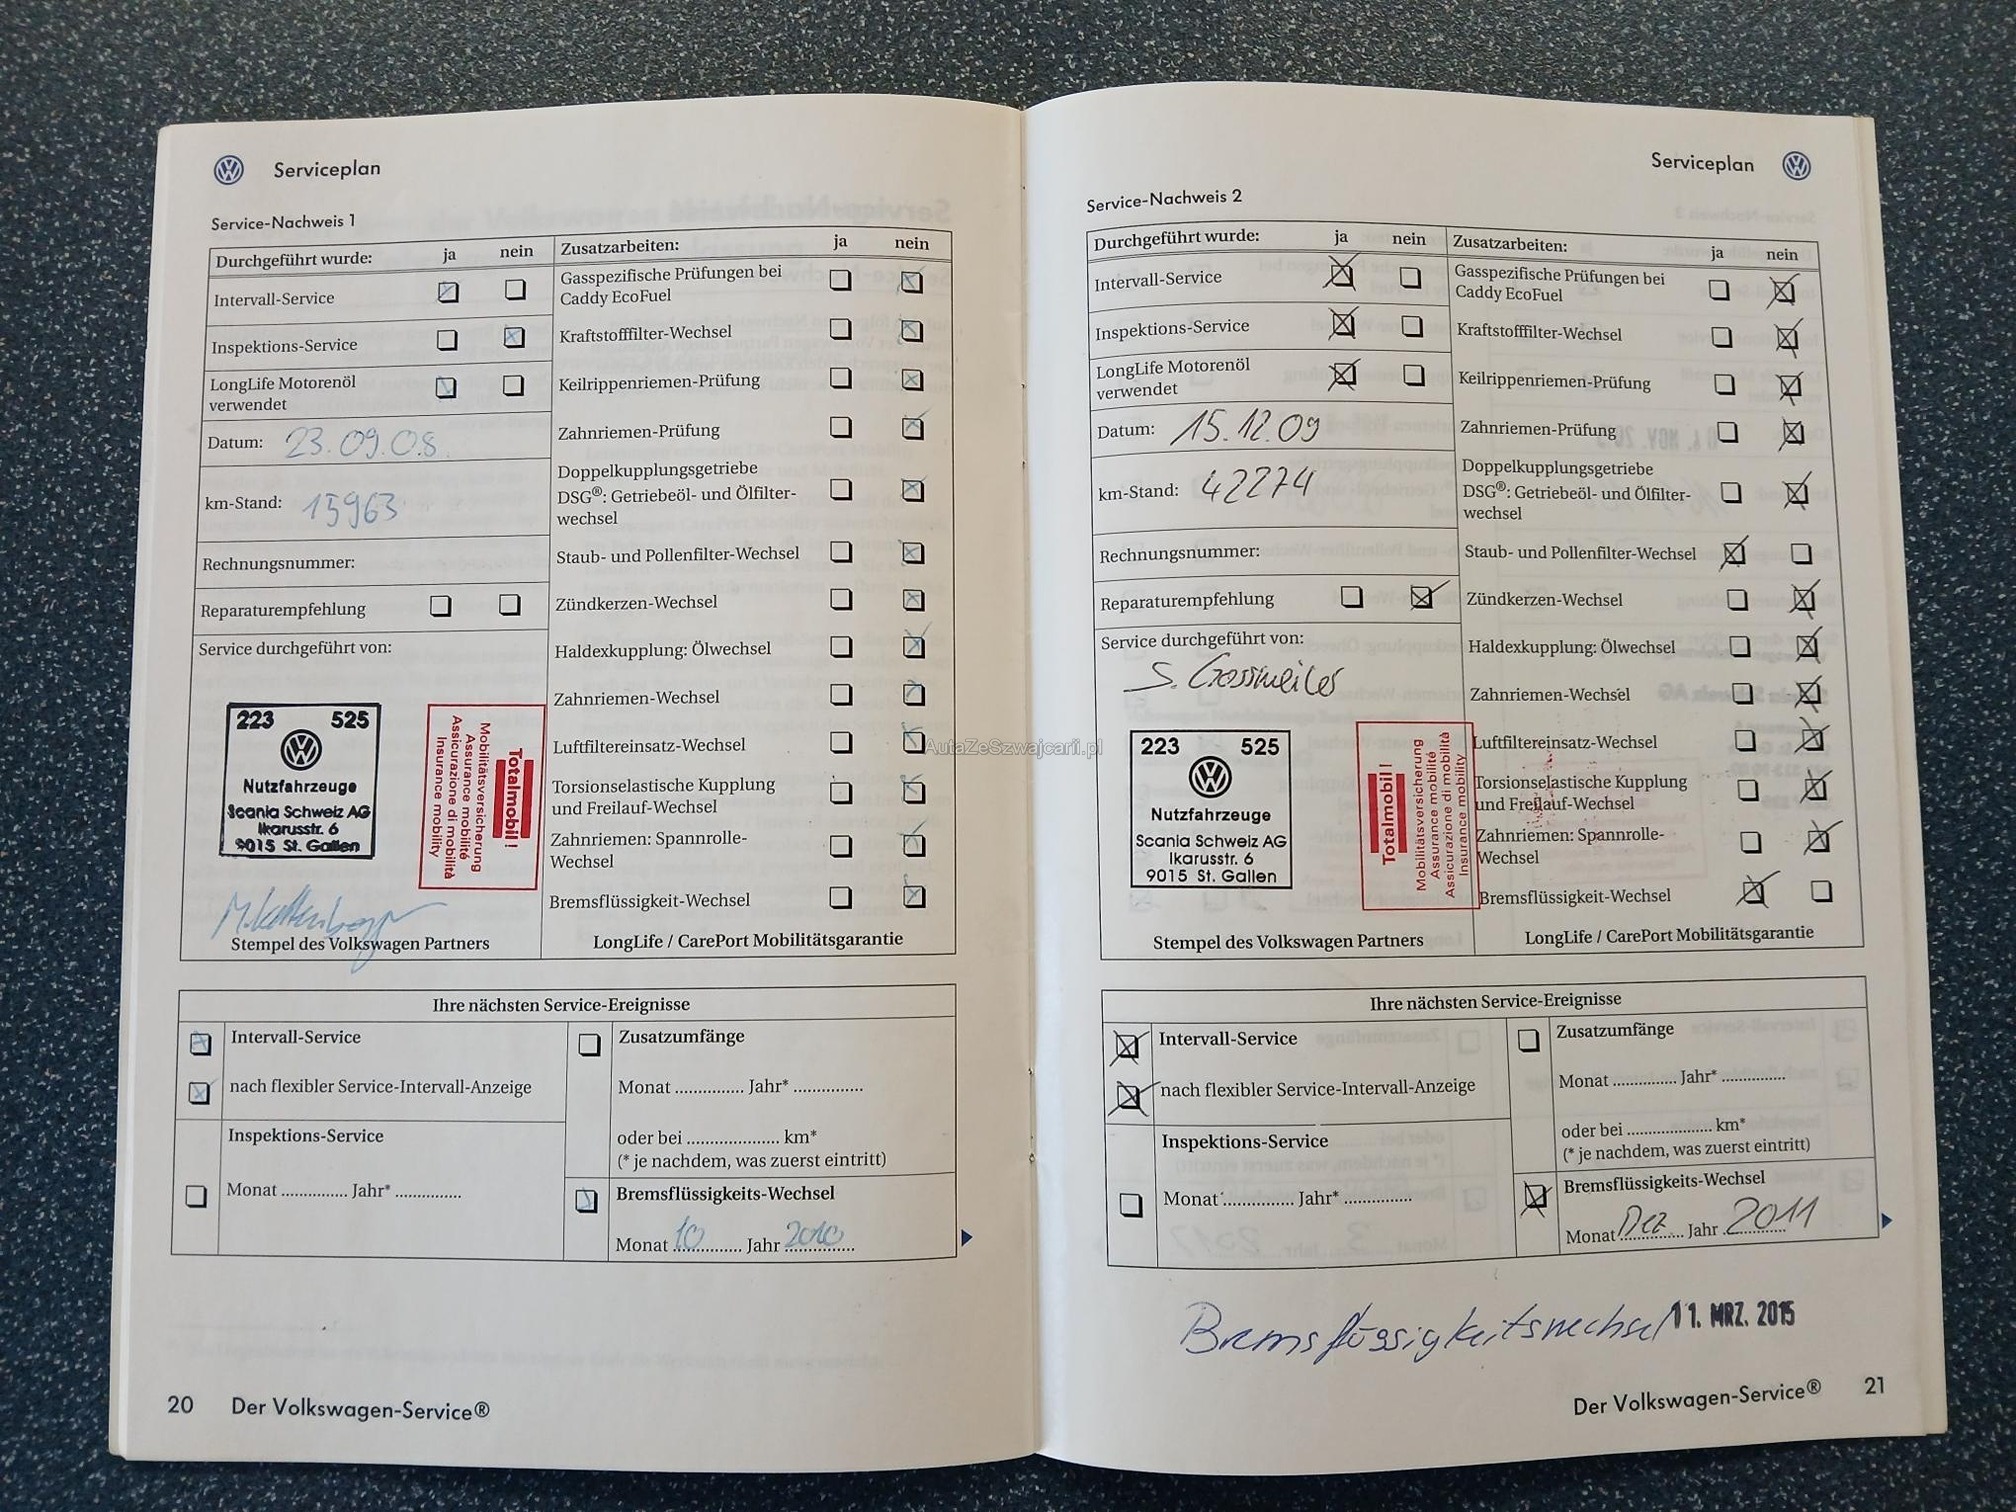 Serviceplan
Service-Nachweis 1
Durchgeführt wurde: ja nein
Intervall-Service
Inspektions-Service
LongLife Motorenöl
verwendet
Datum: 23.09.08
km-Stand: 15963
Rechnungsnummer:
Reparaturempfehlung
Service durchgeführt von:
223 525
Nutzfahrzeuge
Scania Schweiz AG
Ikarusstr. 6
9015 St. Gallen
Totalmobil!
Mobilitätsversicherung
Assurance mobilité
Assicurazione di mobilità
Insurance mobility
Stempel des Volkswagen Partners
Zusatzarbeiten: ja nein
Gasspezifische Prüfungen bei
Caddy EcoFuel
Kraftstofffilter-Wechsel
Keilrippenriemen-Prüfung
Zahnriemen-Prüfung
Doppelkupplungsgetriebe
DSG®: Getriebeöl- und Ölfilter-
wechsel
Staub- und Pollenfilter-Wechsel
Zündkerzen-Wechsel
Haldexkupplung: Ölwechsel
Zahnriemen-Wechsel
Luftfiltereinsatz-Wechsel
Torsionselastische Kupplung
und Freilauf-Wechsel
Zahnriemen: Spannrolle-
Wechsel
Bremsflüssigkeit-Wechsel
LongLife / CarePort Mobilitätsgarantie
Ihre nächsten Service-Ereignisse
Intervall-Service
nach flexibler Service-Intervall-Anzeige
Inspektions-Service
Monat .............. Jahr* ..............
Zusatzumfänge
Monat .............. Jahr* ..............
oder bei .................... km*
(* je nachdem, was zuerst eintritt)
Bremsflüssigkeits-Wechsel
Monat 10 Jahr 2010
20 Der Volkswagen-Service®
Serviceplan
Service-Nachweis 2
Durchgeführt wurde: ja nein
Intervall-Service
Inspektions-Service
LongLife Motorenöl
verwendet
Datum: 15.12.09
km-Stand: 42274
Rechnungsnummer:
Reparaturempfehlung
Service durchgeführt von:
223 525
Nutzfahrzeuge
Scania Schweiz AG
Ikarusstr. 6
9015 St. Gallen
Totalmobil!
Mobilitätsversicherung
Assurance mobilité
Assicurazione di mobilità
Insurance mobility
Stempel des Volkswagen Partners
Zusatzarbeiten: ja nein
Gasspezifische Prüfungen bei
Caddy EcoFuel
Kraftstofffilter-Wechsel
Keilrippenriemen-Prüfung
Zahnriemen-Prüfung
Doppelkupplungsgetriebe
DSG®: Getriebeöl- und Ölfilter-
wechsel
Staub- und Pollenfilter-Wechsel
Zündkerzen-Wechsel
Haldexkupplung: Ölwechsel
Zahnriemen-Wechsel
Luftfiltereinsatz-Wechsel
Torsionselastische Kupplung
und Freilauf-Wechsel
Zahnriemen: Spannrolle-
Wechsel
Bremsflüssigkeit-Wechsel
LongLife / CarePort Mobilitätsgarantie
Ihre nächsten Service-Ereignisse
Intervall-Service
nach flexibler Service-Intervall-Anzeige
Inspektions-Service
Monat .............. Jahr* ..............
Zusatzumfänge
Monat .............. Jahr* ..............
oder bei .................... km*
(* je nachdem, was zuerst eintritt)
Bremsflüssigkeits-Wechsel
Monat Dez Jahr 2011
Bremsflüssigkeitswechsel 11. MRZ. 2015
Der Volkswagen-Service® 21
AutaZeSzwajcarii.pl